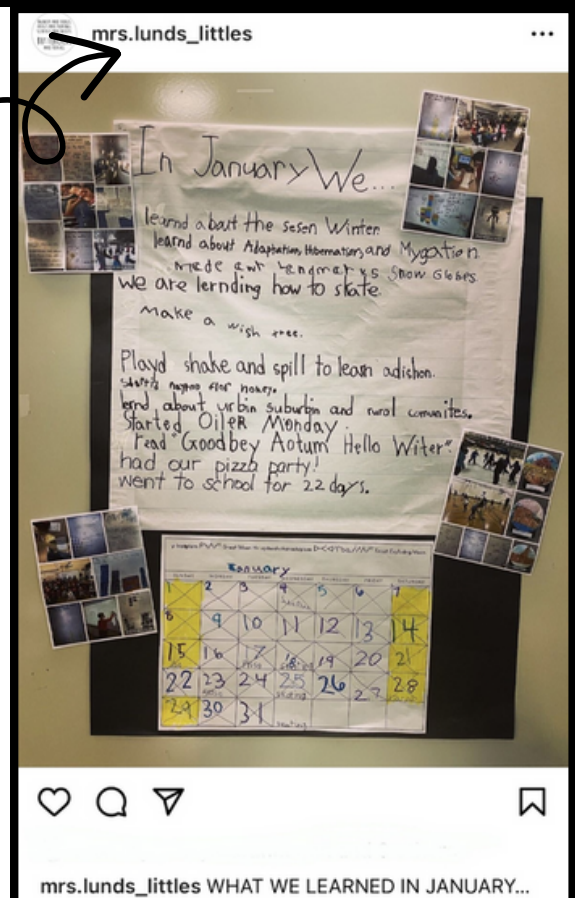 mrs.lunds_littles
In January We...
learnd about the sesen Winter.
learnd about Adaptation, Hibernation, and Mygation
made Snow Globes
we are lernding how to skate.
Make a wish tree.
Playd shake and spill to learn adishon.
lernd about urbin suburbin and rural comunites.
Started OileR Monday.
read "Goodbey Aotum Hello Witer".
had our pizza party!
went to school for 22 days.
January
SUNDAY MONDAY TUESDAY WEDNESDAY THURSDAY FRIDAY SATURDAY
1 2 3 4 5 6 7
8 9 10 11 12 13 14
15 16 17 18 19 20 21
22 23 24 25 26 27 28
29 30 31
mrs.lunds_littles WHAT WE LEARNED IN JANUARY...